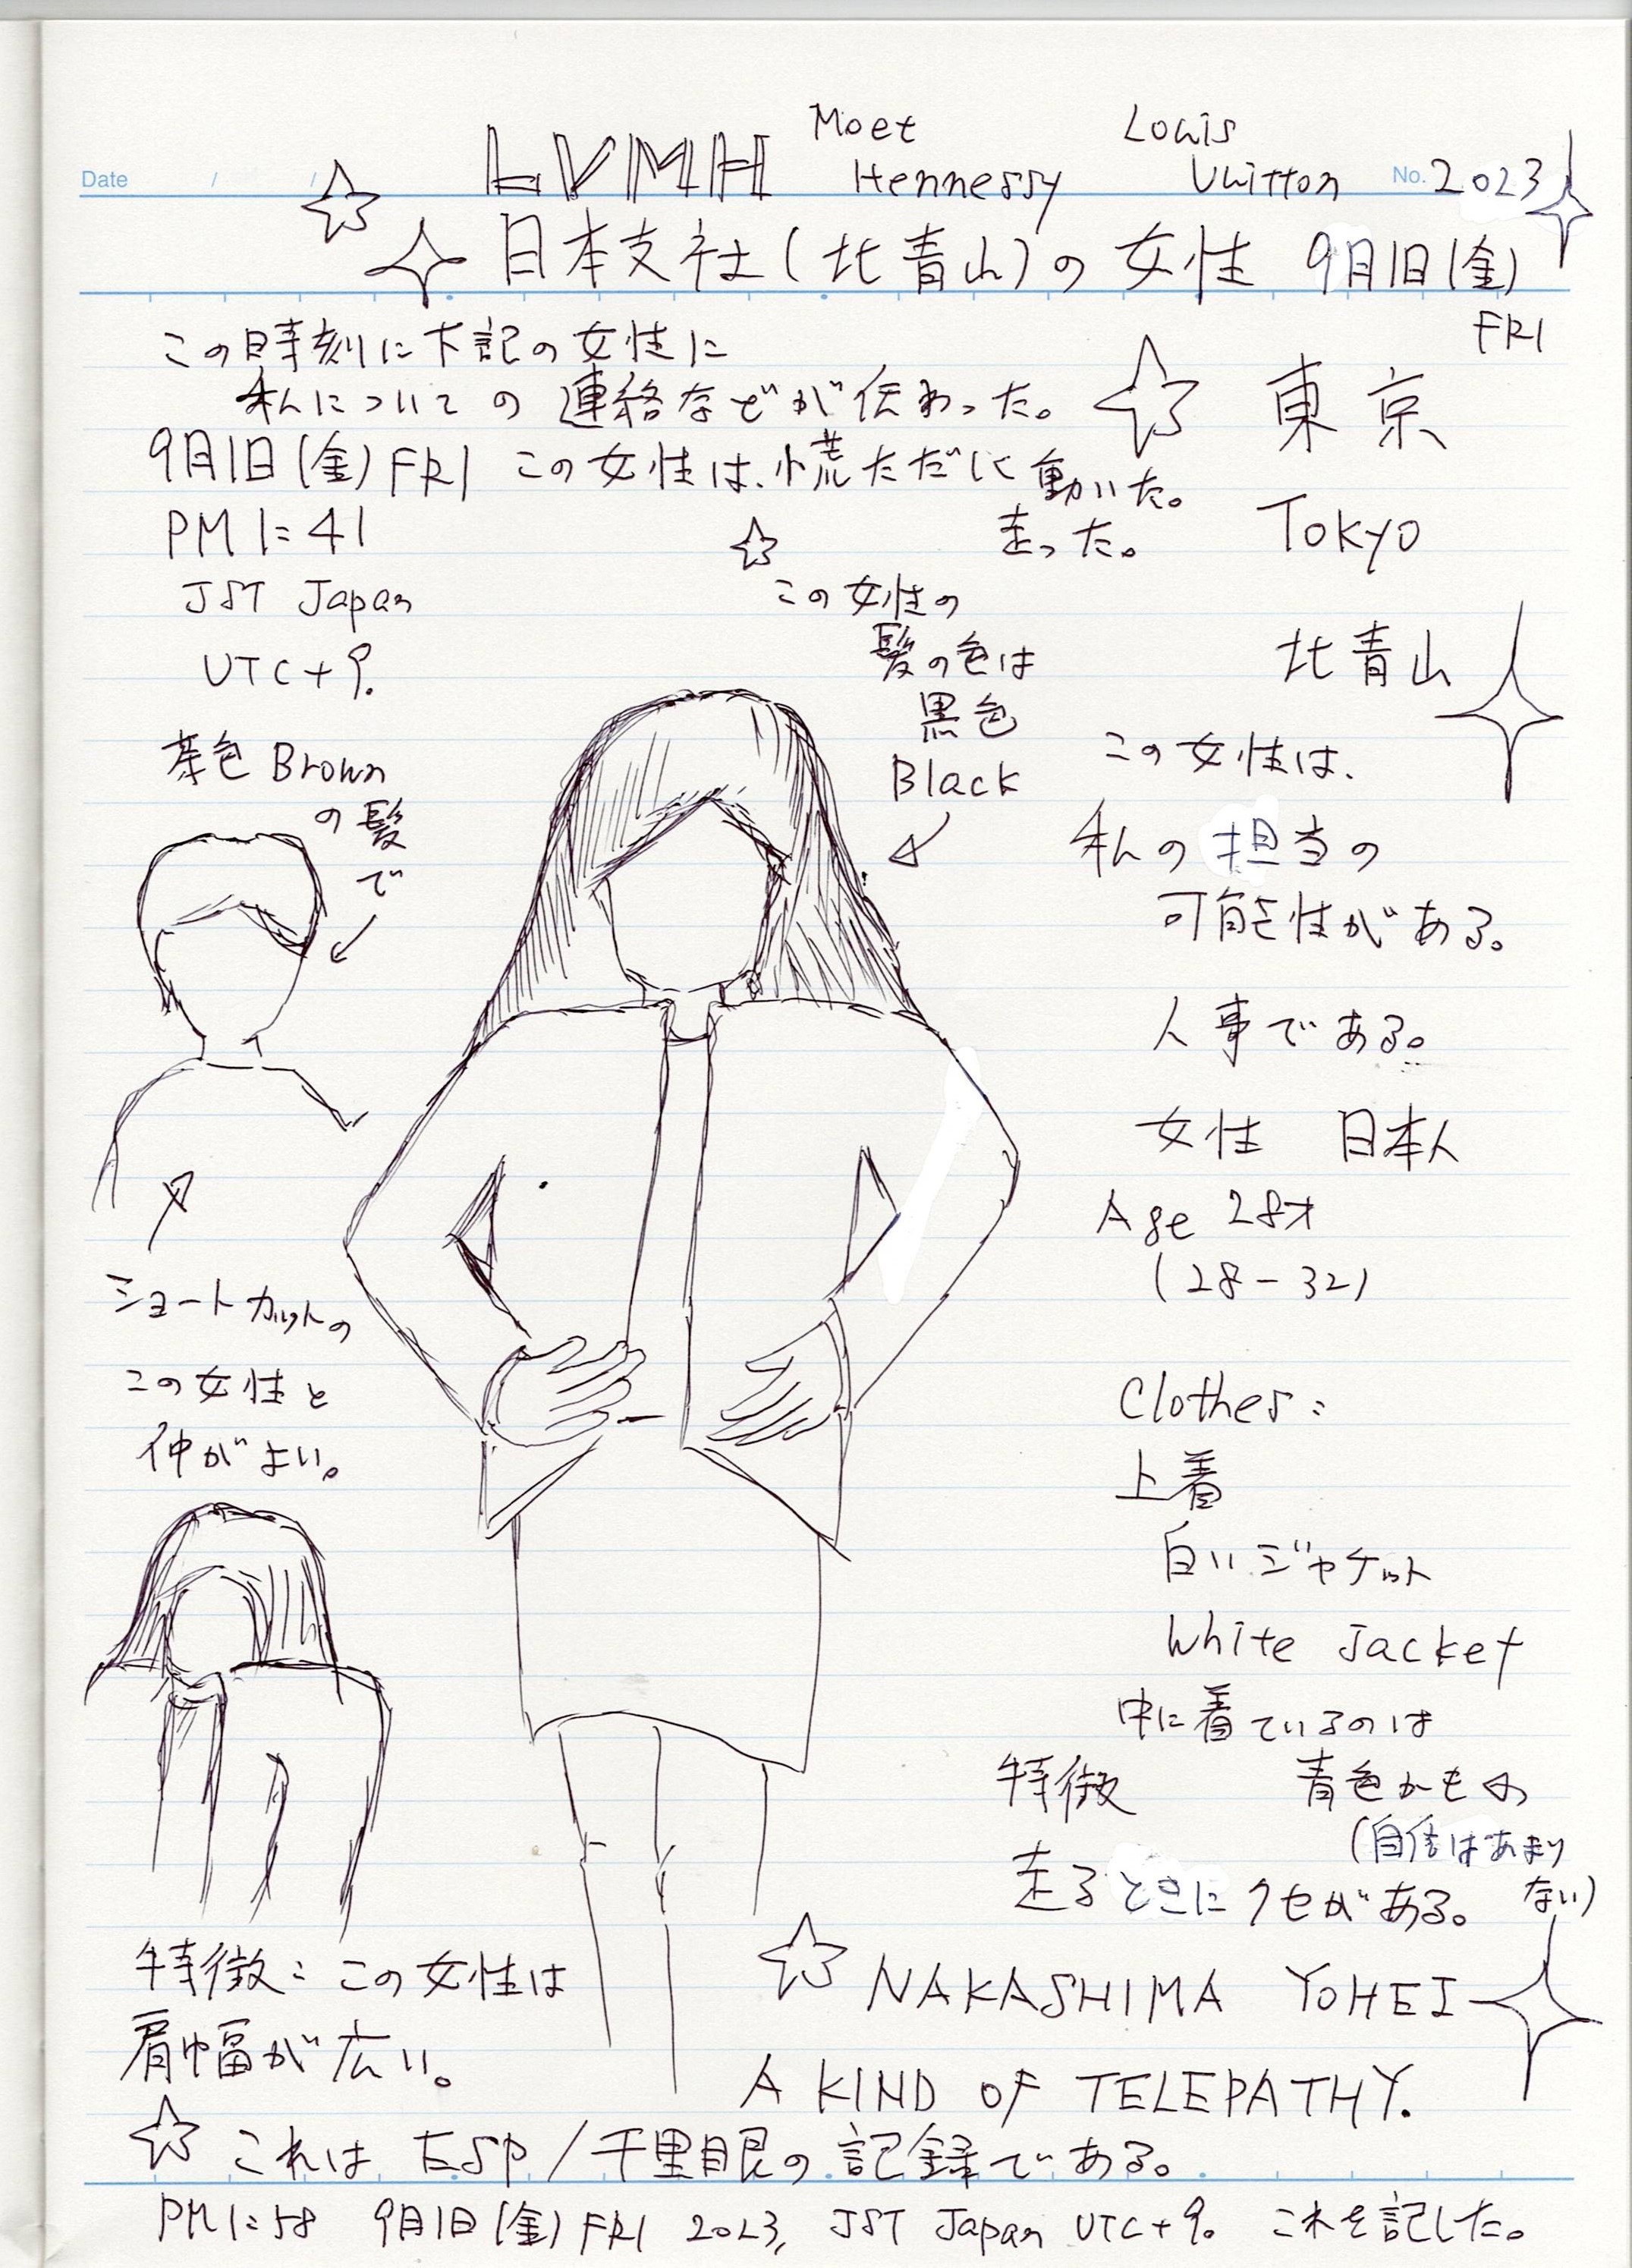 Date / /
LVMH Moet Hennessy Louis Vuitton No. 2023
日本支社(北青山)の女性 9月1日(金)
FRI
この時刻に下記の女性に
私についての連絡などが伝わった。
9月1日(金)FRI この女性は、慌ただしく動いた。
走った。
PM 1:41
JST Japan
UTC+9.
東京
Tokyo
北青山
この女性の
髪の色は
黒色
Black
茶色 Brown
の髪
で
この女性は、
私の担当の
可能性がある。
人事である。
女性 日本人
Age 28才
(28-32)
ショートカットの
この女性と
仲がよい。
Clothes:
上着
白いジャケット
White Jacket
中に着ているのは
青色かもの
(自信はあまり
ない)
特徴
走るときにクセがある。
特徴:この女性は
肩幅が広い。
NAKASHIMA YOHEI
A KIND OF TELEPATHY.
これは ESP/千里眼の記録である。
PM 1:58 9月1日(金)FRI 2023, JST Japan UTC+9。 これを記した。